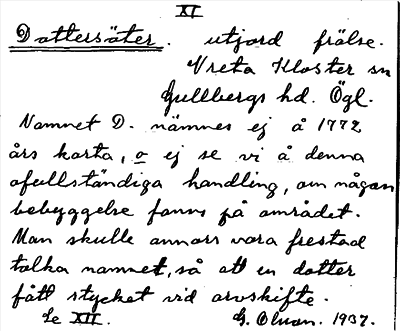 XI
Dottersäter. utjord frälse.
Vreta Kloster sn
Gullbergs hd. Ögl.
Namnet D. nämnes ej å 1772
års karta, o ej se vi å denna
ofullständiga handling, om någon
bebyggelse fanns på området.
Man skulle annars vara frestad
tolka namnet, så att en dotter
fått stycket vid arvskifte.
Se XII. G. Olson. 1937.